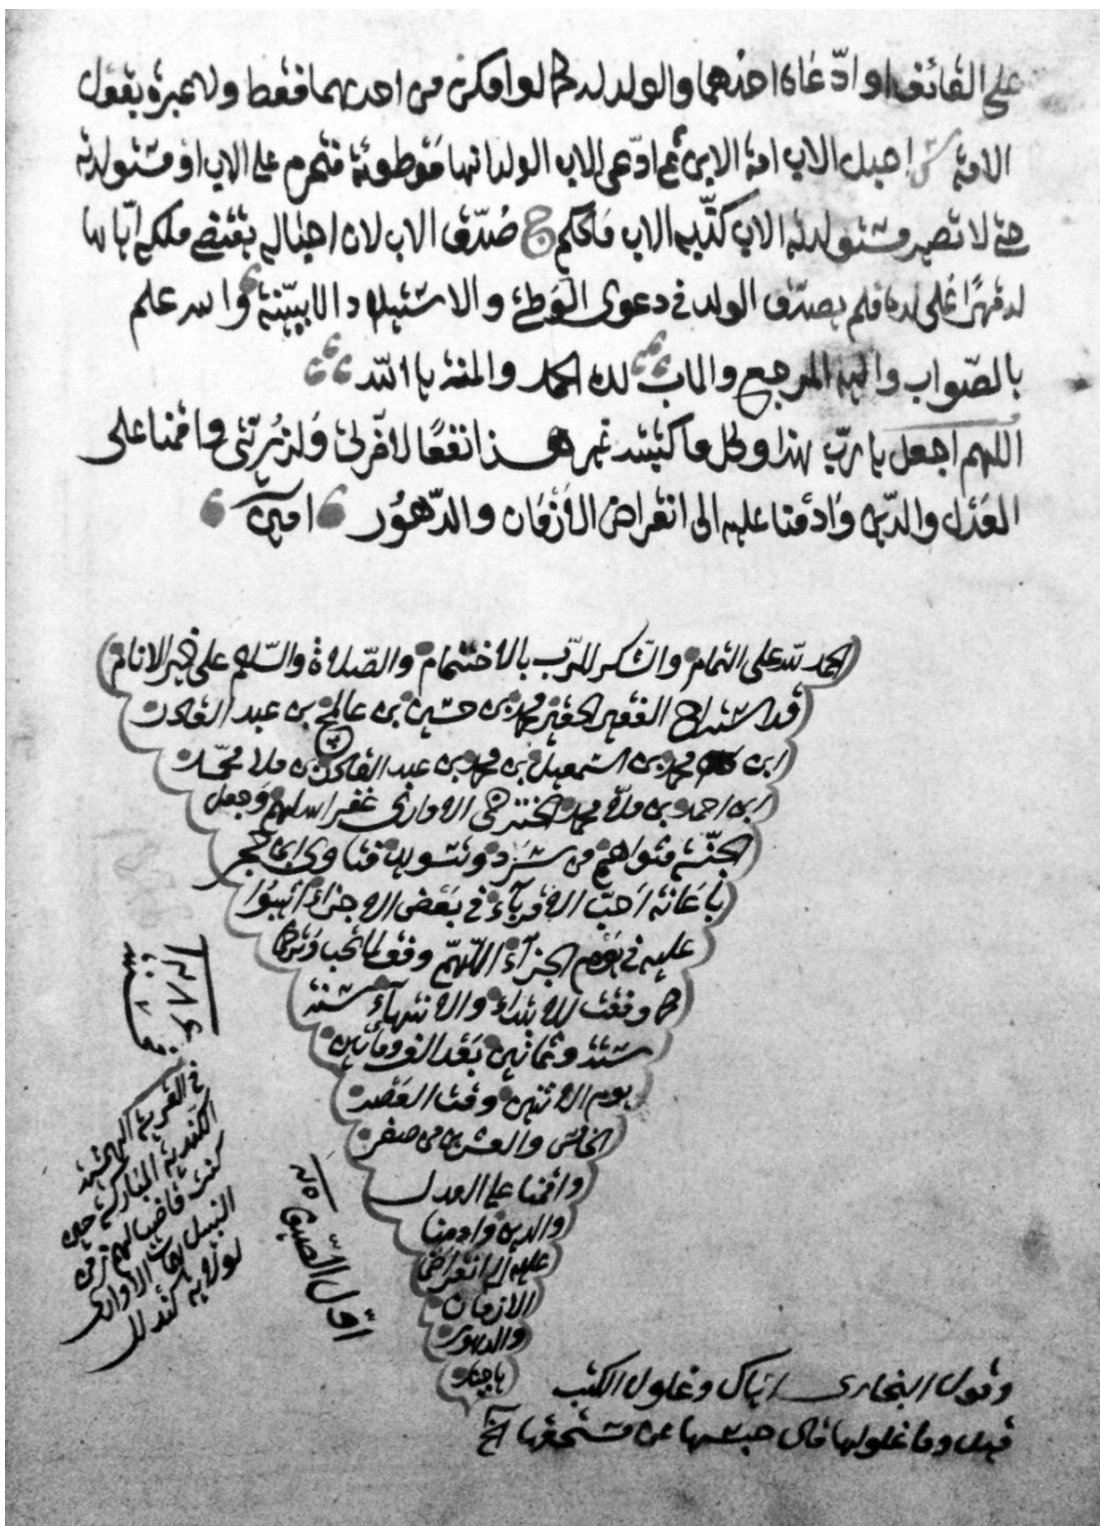 على القائف او ادّعاه احدهما والولد لد كما لو امكن من احدهما فقط ولا عبرة بقول
الامة س احبل الاب امة الابن ثم ادّعى الاب الولد انها موطوئة فتحرم على الاب او مستولدته
حتى لا تصير مستولدة الاب كذّبه الاب فالحكم ج صُدّق الاب لان احباله يقتضي ملكه اياها
لد قهرًا على لده فلم يصدّق الولد في دعوى الوَطئ والاستيلاد الا ببيّنة والله علم
بالصّواب واليه المرجع والماب لله الحمد والمنة يا الله
اللهم اجعل يا ربّ هذا وكل ما كتبته غير هذا نفعًا لاخرتي ولذريتي واقمنا على
العَدْل والدّين وَادمنا عليه الى انقراض الازمان والدّهُور امين
الحمد لله على التمام والشكر للرّب بالاختتام والصّلاة والسّلام على خير الانام
قد استنساخ الفقير الحقير محمد بن حسين بن عالم بن عبد القادر
ابن محمد بن اسمعيل بن محمد بن عبد القادر بن ملا محمّد
ابن احمد بن ملا محمد الاواري غفر الله لهم وجعل
الجنّة مثواهم من وتسويد فتاوى ابن حجر
باعانة احبّ الاقرباء في بعض الاجزاء اثيبوا
عليه في يَوْم الجزآء اللّهمّ وفق لما تحب وترضى
كما وفقت للابتداء والانتهاء سنة
ستة وثمانين بَعْد الف ومأتين
يوم الاثنين وقت العَصْر
الخامس والعشرين من صفر
واقمنا على العدل
والدين وادمنا
عليه الى انقراض
الازمان
والدهور
يا جبار
١٢٨٦
سنة
في القرية
المباركة حين
كنت قاضيا لهم
الاواري
اوّل الصّيف
وقول البخاري اياك وغلول الكتب
قيل وما غلولها قال حبسها عن مستحقها الخ